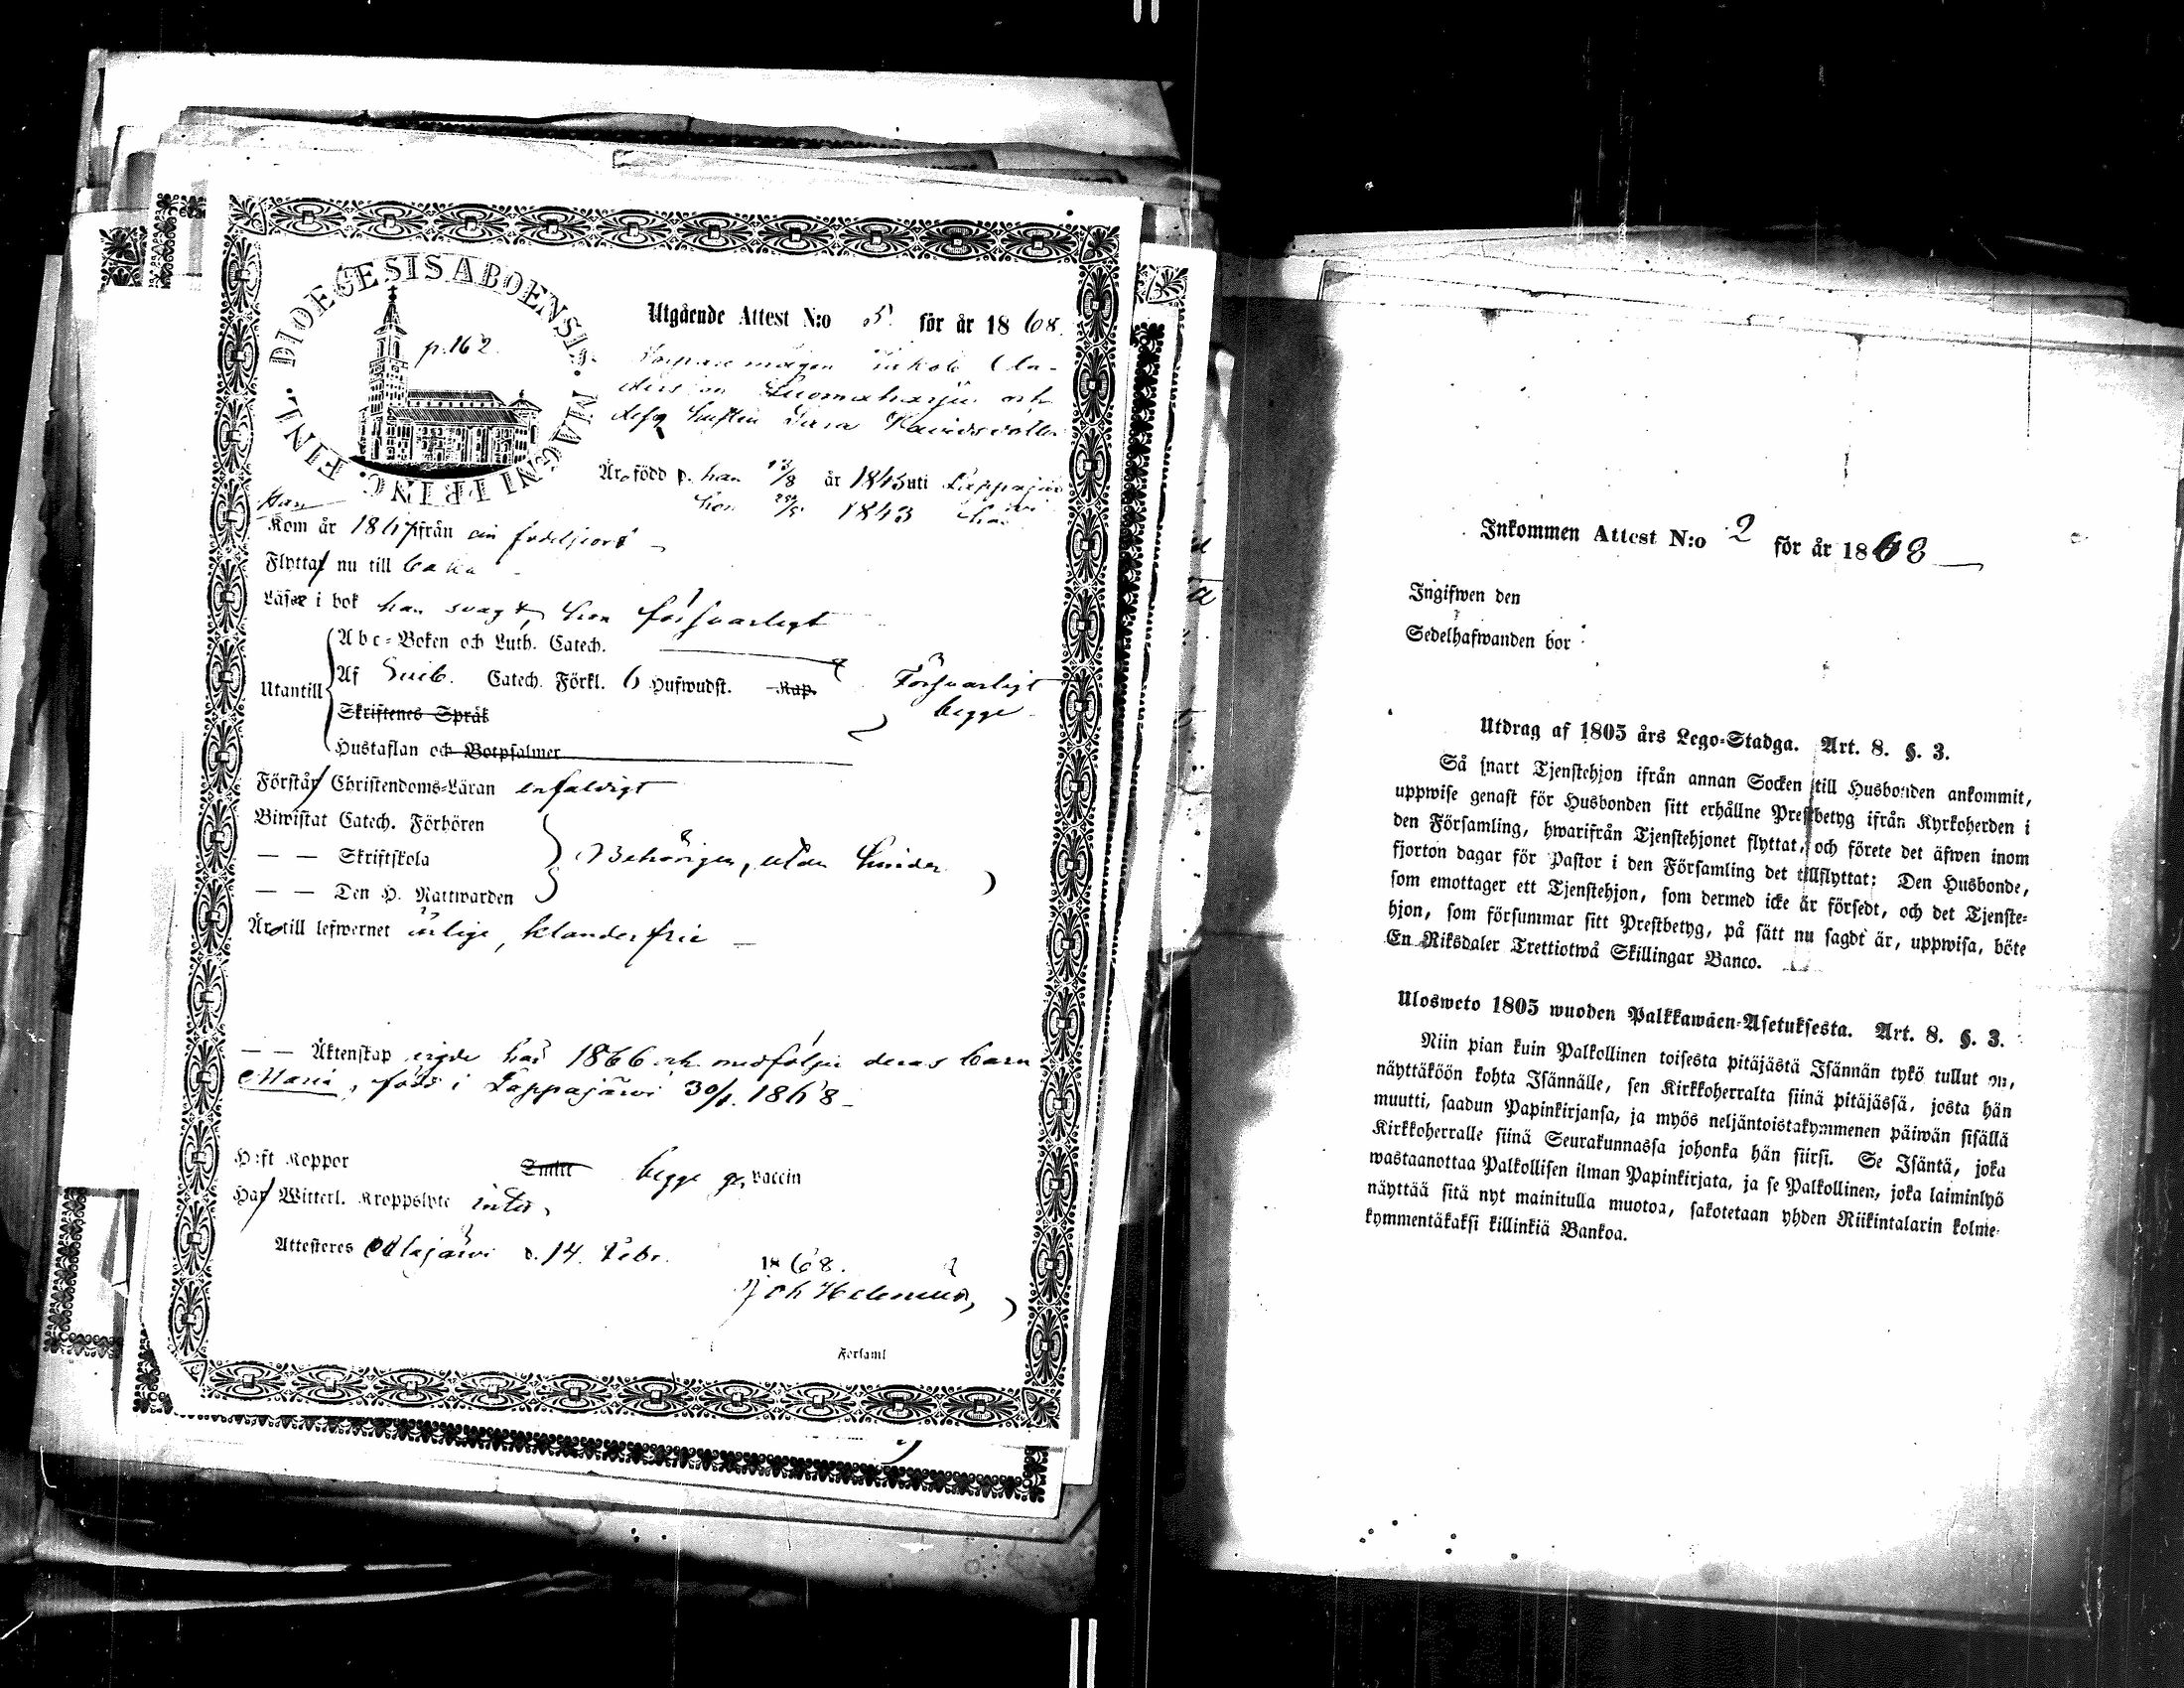 DIOECESIS ABOENSIS. MAGNI PRINC. FINL.
p. 162.
Utgående Attest N:o 5. för år 1868.
Suomaharju och
dess hustru
Är född d. han 13/8 år 1845 uti Lappajärvi
hon 1843 här
Han
Kom år 1867 ifrån sin födelseort
Flyttar nu till baka
Läser i bok han svagt, hon försvarligt
Utantill
Abc-Boken och Luth. Catech.
Af Sveb. Catech. Förkl. 6 Hufwudst. Kap. Försvarligt
Skriftenes Språk begge
Hustaflan och Botpsalmer
Förstår Christendoms-Läran enfaldigt
Biwistat Catech. Förhören
— — Skriftskola Behörigen, utan hinder
— — Den H. Nattwarden
Är till lefwernet ärlige, klanderfrie
— — Äktenskap vigde här 1866 och medföljer deras barn
Maria, född i Lappajärvi 30/1. 1868
Haft Koppor begge vaccin
Har Witterl. Kroppslyte intet
Attesteres Alajärvi d. 14. Febr. 1868.
Joh Helenius
Församl
Inkommen Attest N:o 2 för år 1868
Ingifwen den
Sedelhafwanden bor
Utdrag af 1805 års Lego-Stadga. Art. 8. §. 3.
Så snart Tjenstehjon ifrån annan Socken till Husbonden ankommit,
uppwise genast för Husbonden sitt erhållne Prestbetyg ifrån Kyrkoherden i
den Församling, hwarifrån Tjenstehjonet flyttat, och förete det äfwen inom
fjorton dagar för Pastor i den Församling det tillflyttat: Den Husbonde,
som emottager ett Tjenstehjon, som dermed icke är försedt, och det Tjenste-
hjon, som försummar sitt Prestbetyg, på sätt nu sagdt är, uppwisa, böte
En Riksdaler Trettiotwå Skillingar Banco.
Ulosweto 1805 wuoden Palkkawäen-Asetuksesta. Art. 8. §. 3.
Niin pian kuin Palkollinen toisesta pitäjästä Isännän tykö tullut on,
näyttäköön kohta Isännälle, sen Kirkkoherralta siinä pitäjässä, josta hän
muutti, saadun Papinkirjansa, ja myös neljäntoistakymmenen päiwän sisällä
Kirkkoherralle siinä Seurakunnassa johonka hän siirsi. Se Isäntä, joka
wastaanottaa Palkollisen ilman Papinkirjata, ja se Palkollinen, joka laiminlyö
näyttää sitä nyt mainitulla muotoa, sakotetaan yhden Riikintalarin kolme-
kymmentäkaksi killinkiä Bankoa.